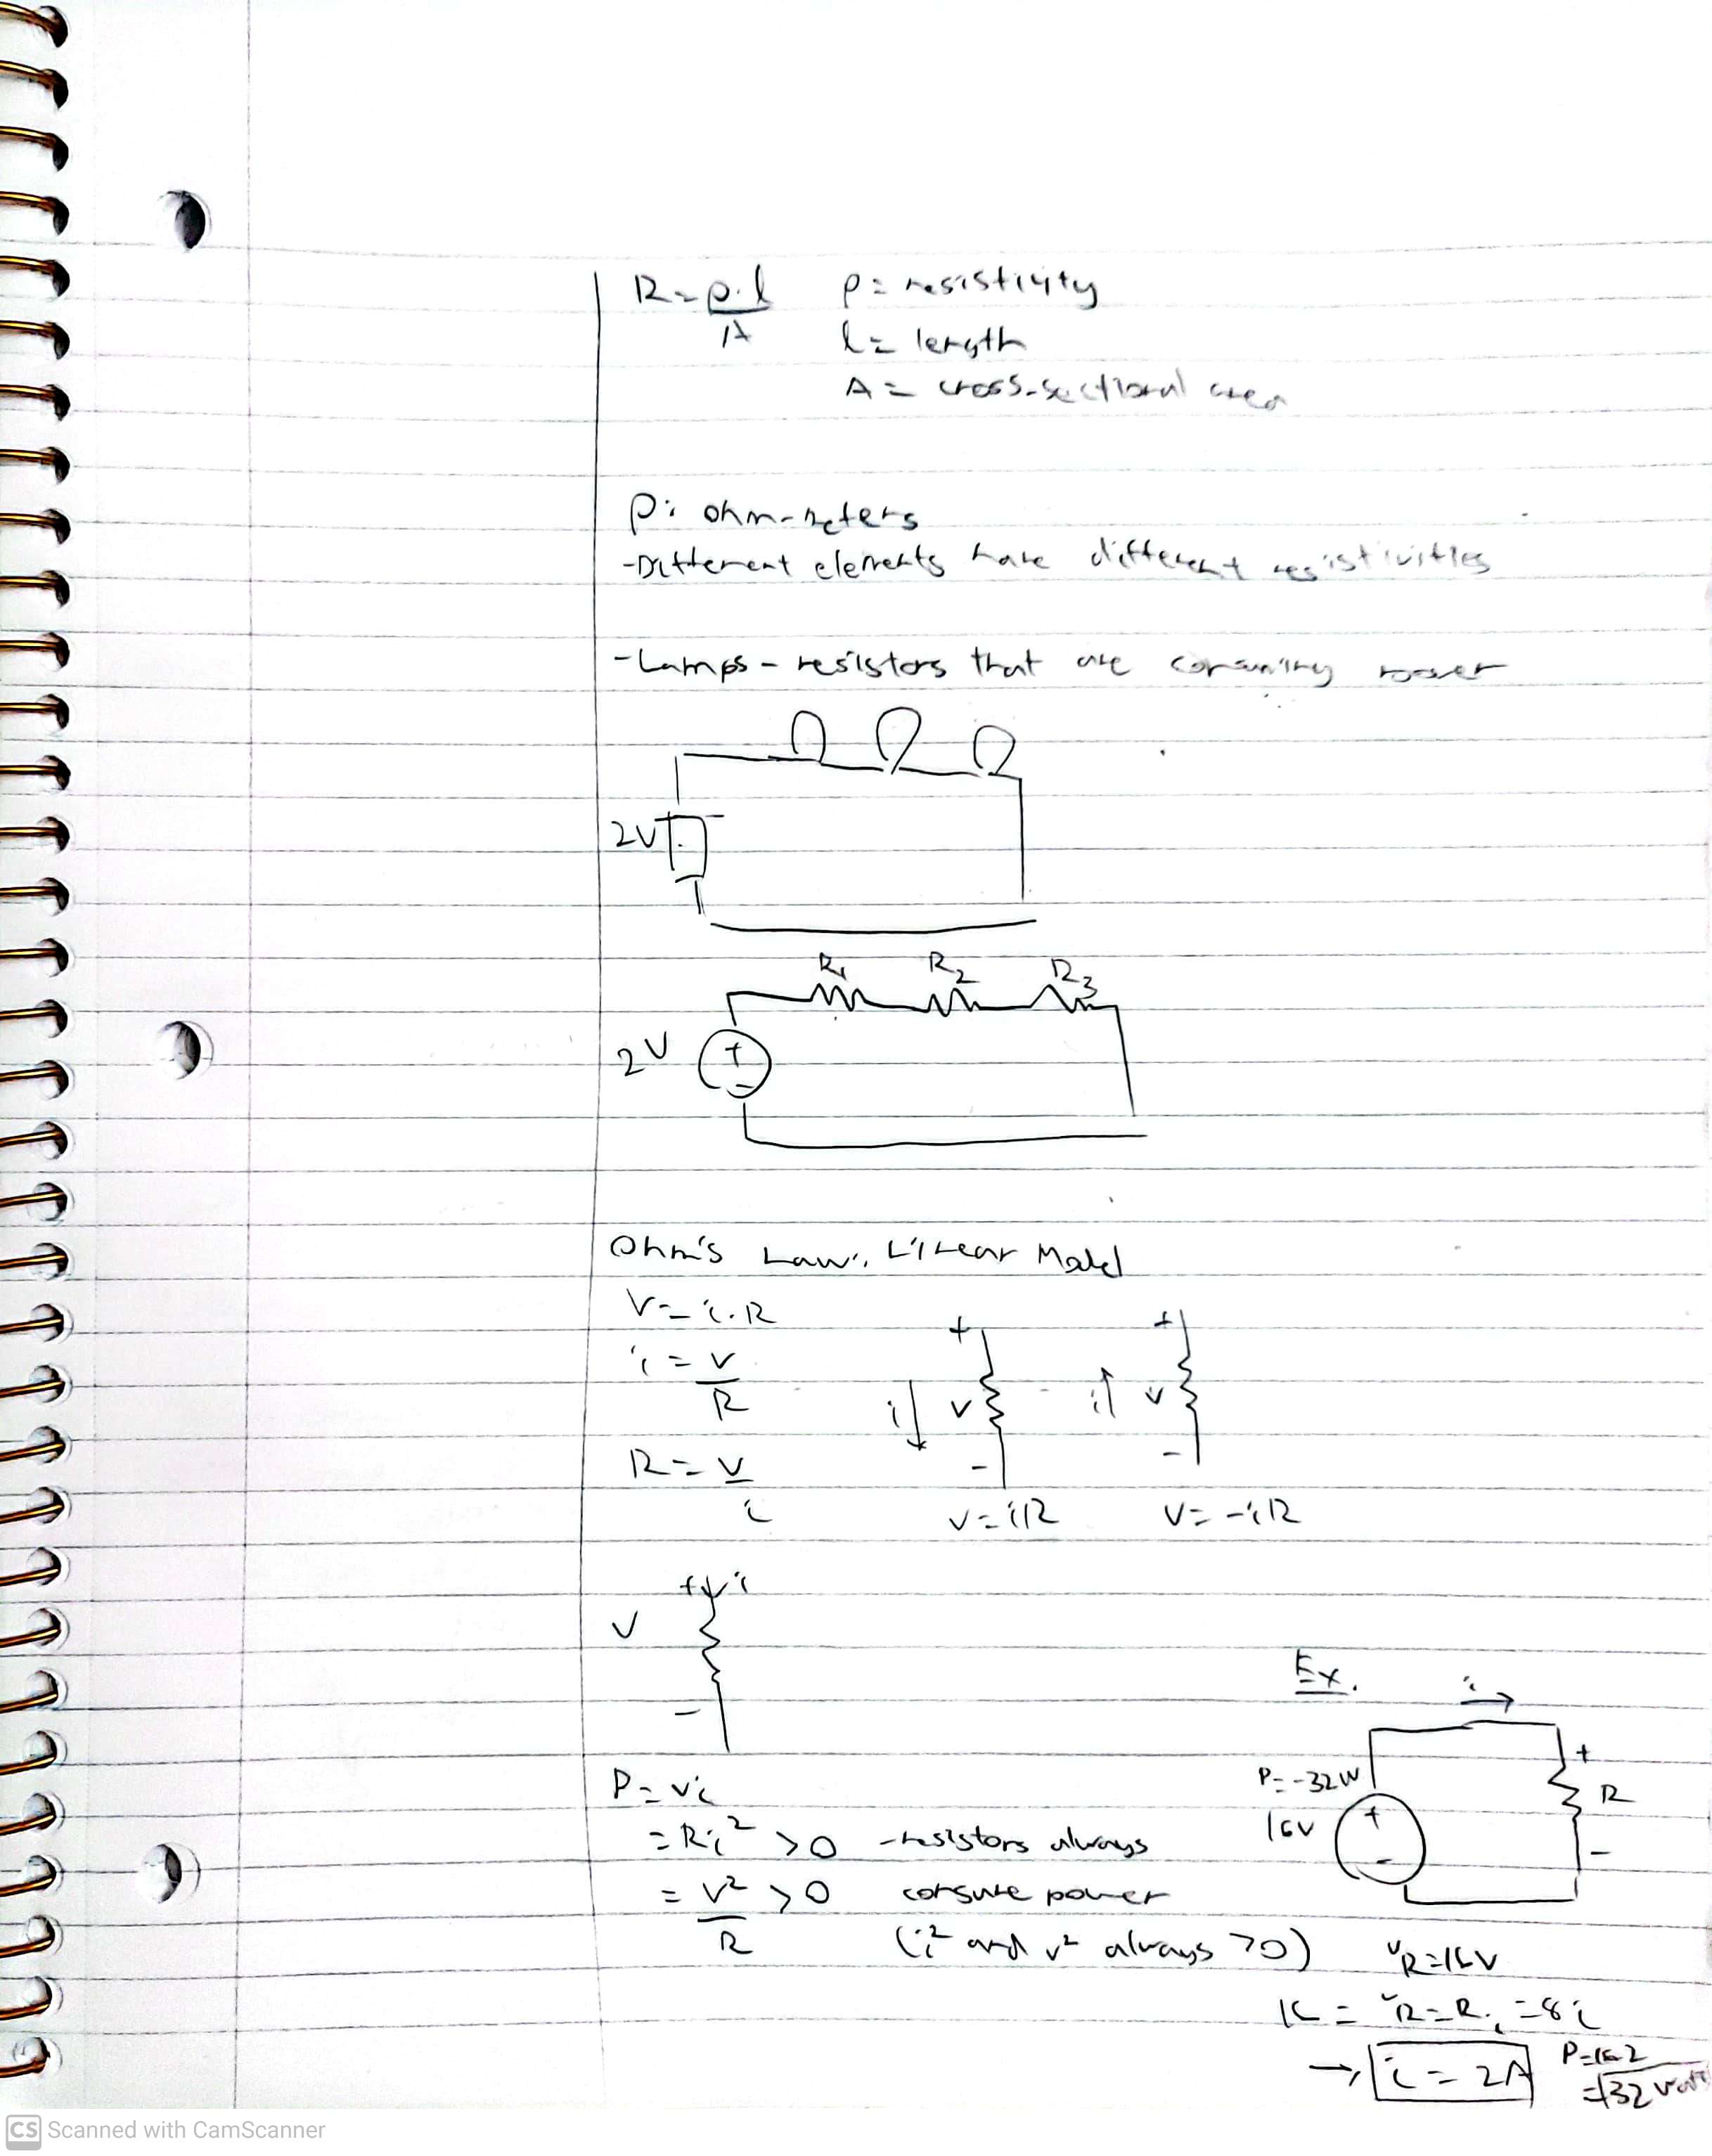 R = ρ·l / A   ρ = resistivity
l = length
A = cross-sectional area
ρ: ohm-meters
-Different elements have different resistivities
-Lamps - resistors that are consuming power
2V
R1 R2 R3
2V + -
Ohm's Law: Linear Model
V = i·R
i = V / R
R = V / i
+ i↓ V -
V = iR
+ i↑ V -
V = -iR
+ ↓ i
V
-
P = Vi
= Ri² >0 -resistors always
= V² / R >0 consume power
(i² and v² always >0)
Ex.
i →
P = -32W
16V + -
+ R -
VR = 16V
16 = VR = R·i = 8i
→ i = 2A
P = 16·2
= +32 watt